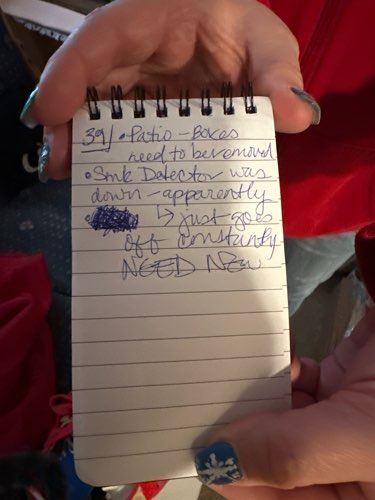 39/ • Patio - Boxes
need to be removed
• Smk Detector was
down - apparently
↳ just goes
off constantly
NEED New